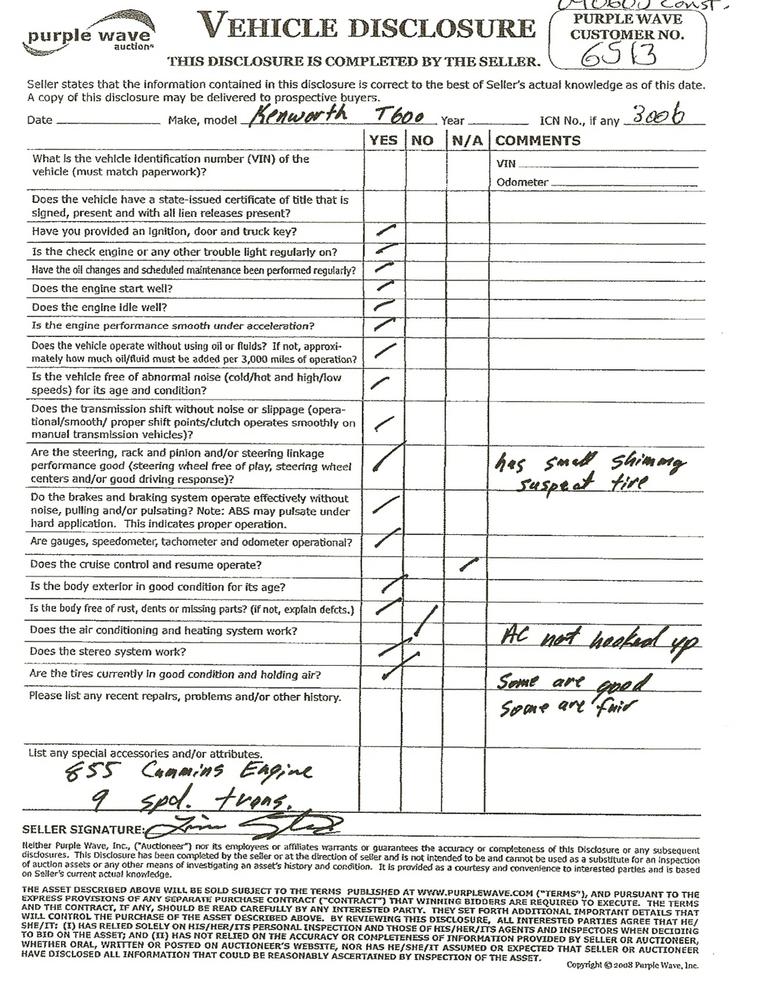 purple wave
auction®
VEHICLE DISCLOSURE
THIS DISCLOSURE IS COMPLETED BY THE SELLER.
090600 Const.
PURPLE WAVE
CUSTOMER NO.
6513
Seller states that the information contained in this disclosure is correct to the best of Seller's actual knowledge as of this date.
A copy of this disclosure may be delivered to prospective buyers.
Date Make, model Kenworth T600 Year ICN No., if any 3006
YES NO N/A COMMENTS
What is the vehicle identification number (VIN) of the
vehicle (must match paperwork)?
VIN
Odometer
Does the vehicle have a state-issued certificate of title that is
signed, present and with all lien releases present?
Have you provided an ignition, door and truck key?
Is the check engine or any other trouble light regularly on?
Have the oil changes and scheduled maintenance been performed regularly?
Does the engine start well?
Does the engine idle well?
Is the engine performance smooth under acceleration?
Does the vehicle operate without using oil or fluids? If not, approxi-
mately how much oil/fluid must be added per 3,000 miles of operation?
Is the vehicle free of abnormal noise (cold/hot and high/low
speeds) for its age and condition?
Does the transmission shift without noise or slippage (opera-
tional/smooth/ proper shift points/clutch operates smoothly on
manual transmission vehicles)?
Are the steering, rack and pinion and/or steering linkage
performance good (steering wheel free of play, steering wheel
centers and/or good driving response)?
has small shimmy
suspect tire
Do the brakes and braking system operate effectively without
noise, pulling and/or pulsating? Note: ABS may pulsate under
hard application. This indicates proper operation.
Are gauges, speedometer, tachometer and odometer operational?
Does the cruise control and resume operate?
Is the body exterior in good condition for its age?
Is the body free of rust, dents or missing parts? (if not, explain defcts.)
Does the air conditioning and heating system work?
AC not hooked up
Does the stereo system work?
Are the tires currently in good condition and holding air?
Some are good
Some are fair
Please list any recent repairs, problems and/or other history.
List any special accessories and/or attributes.
855 Cummins Engine
9 spd. trans.
SELLER SIGNATURE:
Neither Purple Wave, Inc., ("Auctioneer") nor its employees or affiliates warrants or guarantees the accuracy or completeness of this Disclosure or any subsequent
disclosures. This Disclosure has been completed by the seller or at the direction of seller and is not intended to be and cannot be used as a substitute for an inspection
of auction assets or any other means of investigating an asset's history and condition. It is provided as a courtesy and convenience to interested parties and is based
on Seller's current actual knowledge.
THE ASSET DESCRIBED ABOVE WILL BE SOLD SUBJECT TO THE TERMS PUBLISHED AT WWW.PURPLEWAVE.COM ("TERMS"), AND PURSUANT TO THE
EXPRESS PROVISIONS OF ANY SEPARATE PURCHASE CONTRACT ("CONTRACT") THAT WINNING BIDDERS ARE REQUIRED TO EXECUTE. THE TERMS
AND THE CONTRACT, IF ANY, SHOULD BE READ CAREFULLY BY ANY INTERESTED PARTY. THEY SET FORTH ADDITIONAL IMPORTANT DETAILS THAT
WILL CONTROL THE PURCHASE OF THE ASSET DESCRIBED ABOVE. BY REVIEWING THIS DISCLOSURE, ALL INTERESTED PARTIES AGREE THAT HE/
SHE/IT: (I) HAS RELIED SOLELY ON HIS/HER/ITS PERSONAL INSPECTION AND THOSE OF HIS/HER/ITS AGENTS AND INSPECTORS WHEN DECIDING
TO BID ON THE ASSET; AND (II) HAS NOT RELIED ON THE ACCURACY OR COMPLETENESS OF INFORMATION PROVIDED BY SELLER OR AUCTIONEER,
WHETHER ORAL, WRITTEN OR POSTED ON AUCTIONEER'S WEBSITE, NOR HAS HE/SHE/IT ASSUMED OR EXPECTED THAT SELLER OR AUCTIONEER
HAVE DISCLOSED ALL INFORMATION THAT COULD BE REASONABLY ASCERTAINED BY INSPECTION OF THE ASSET.
Copyright © 2008 Purple Wave, Inc.